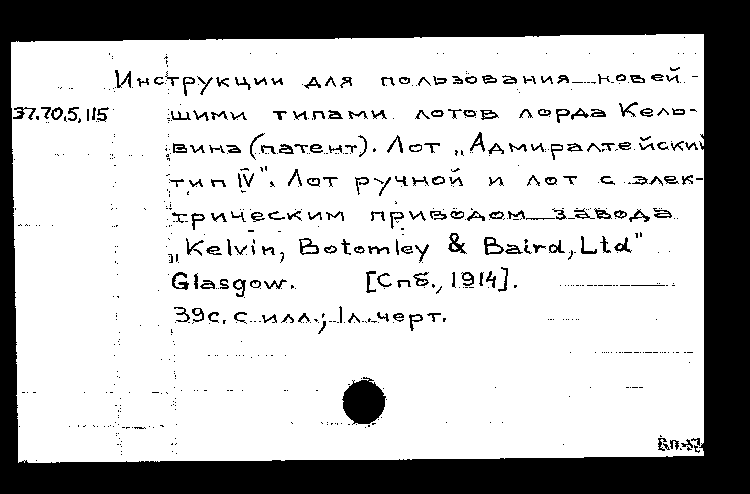 Инструкции для пользования новей-
37.70.5.115 шими типами лотов лорда Кель-
вина (патент). Лот „Адмиралтейский
тип IV". Лот ручной и лот с элек-
трическим приводом завода
„Kelvin, Botomley & Baird, Ltd"
Glasgow. [Спб., 1914].
39с. с илл.; 1л. черт.